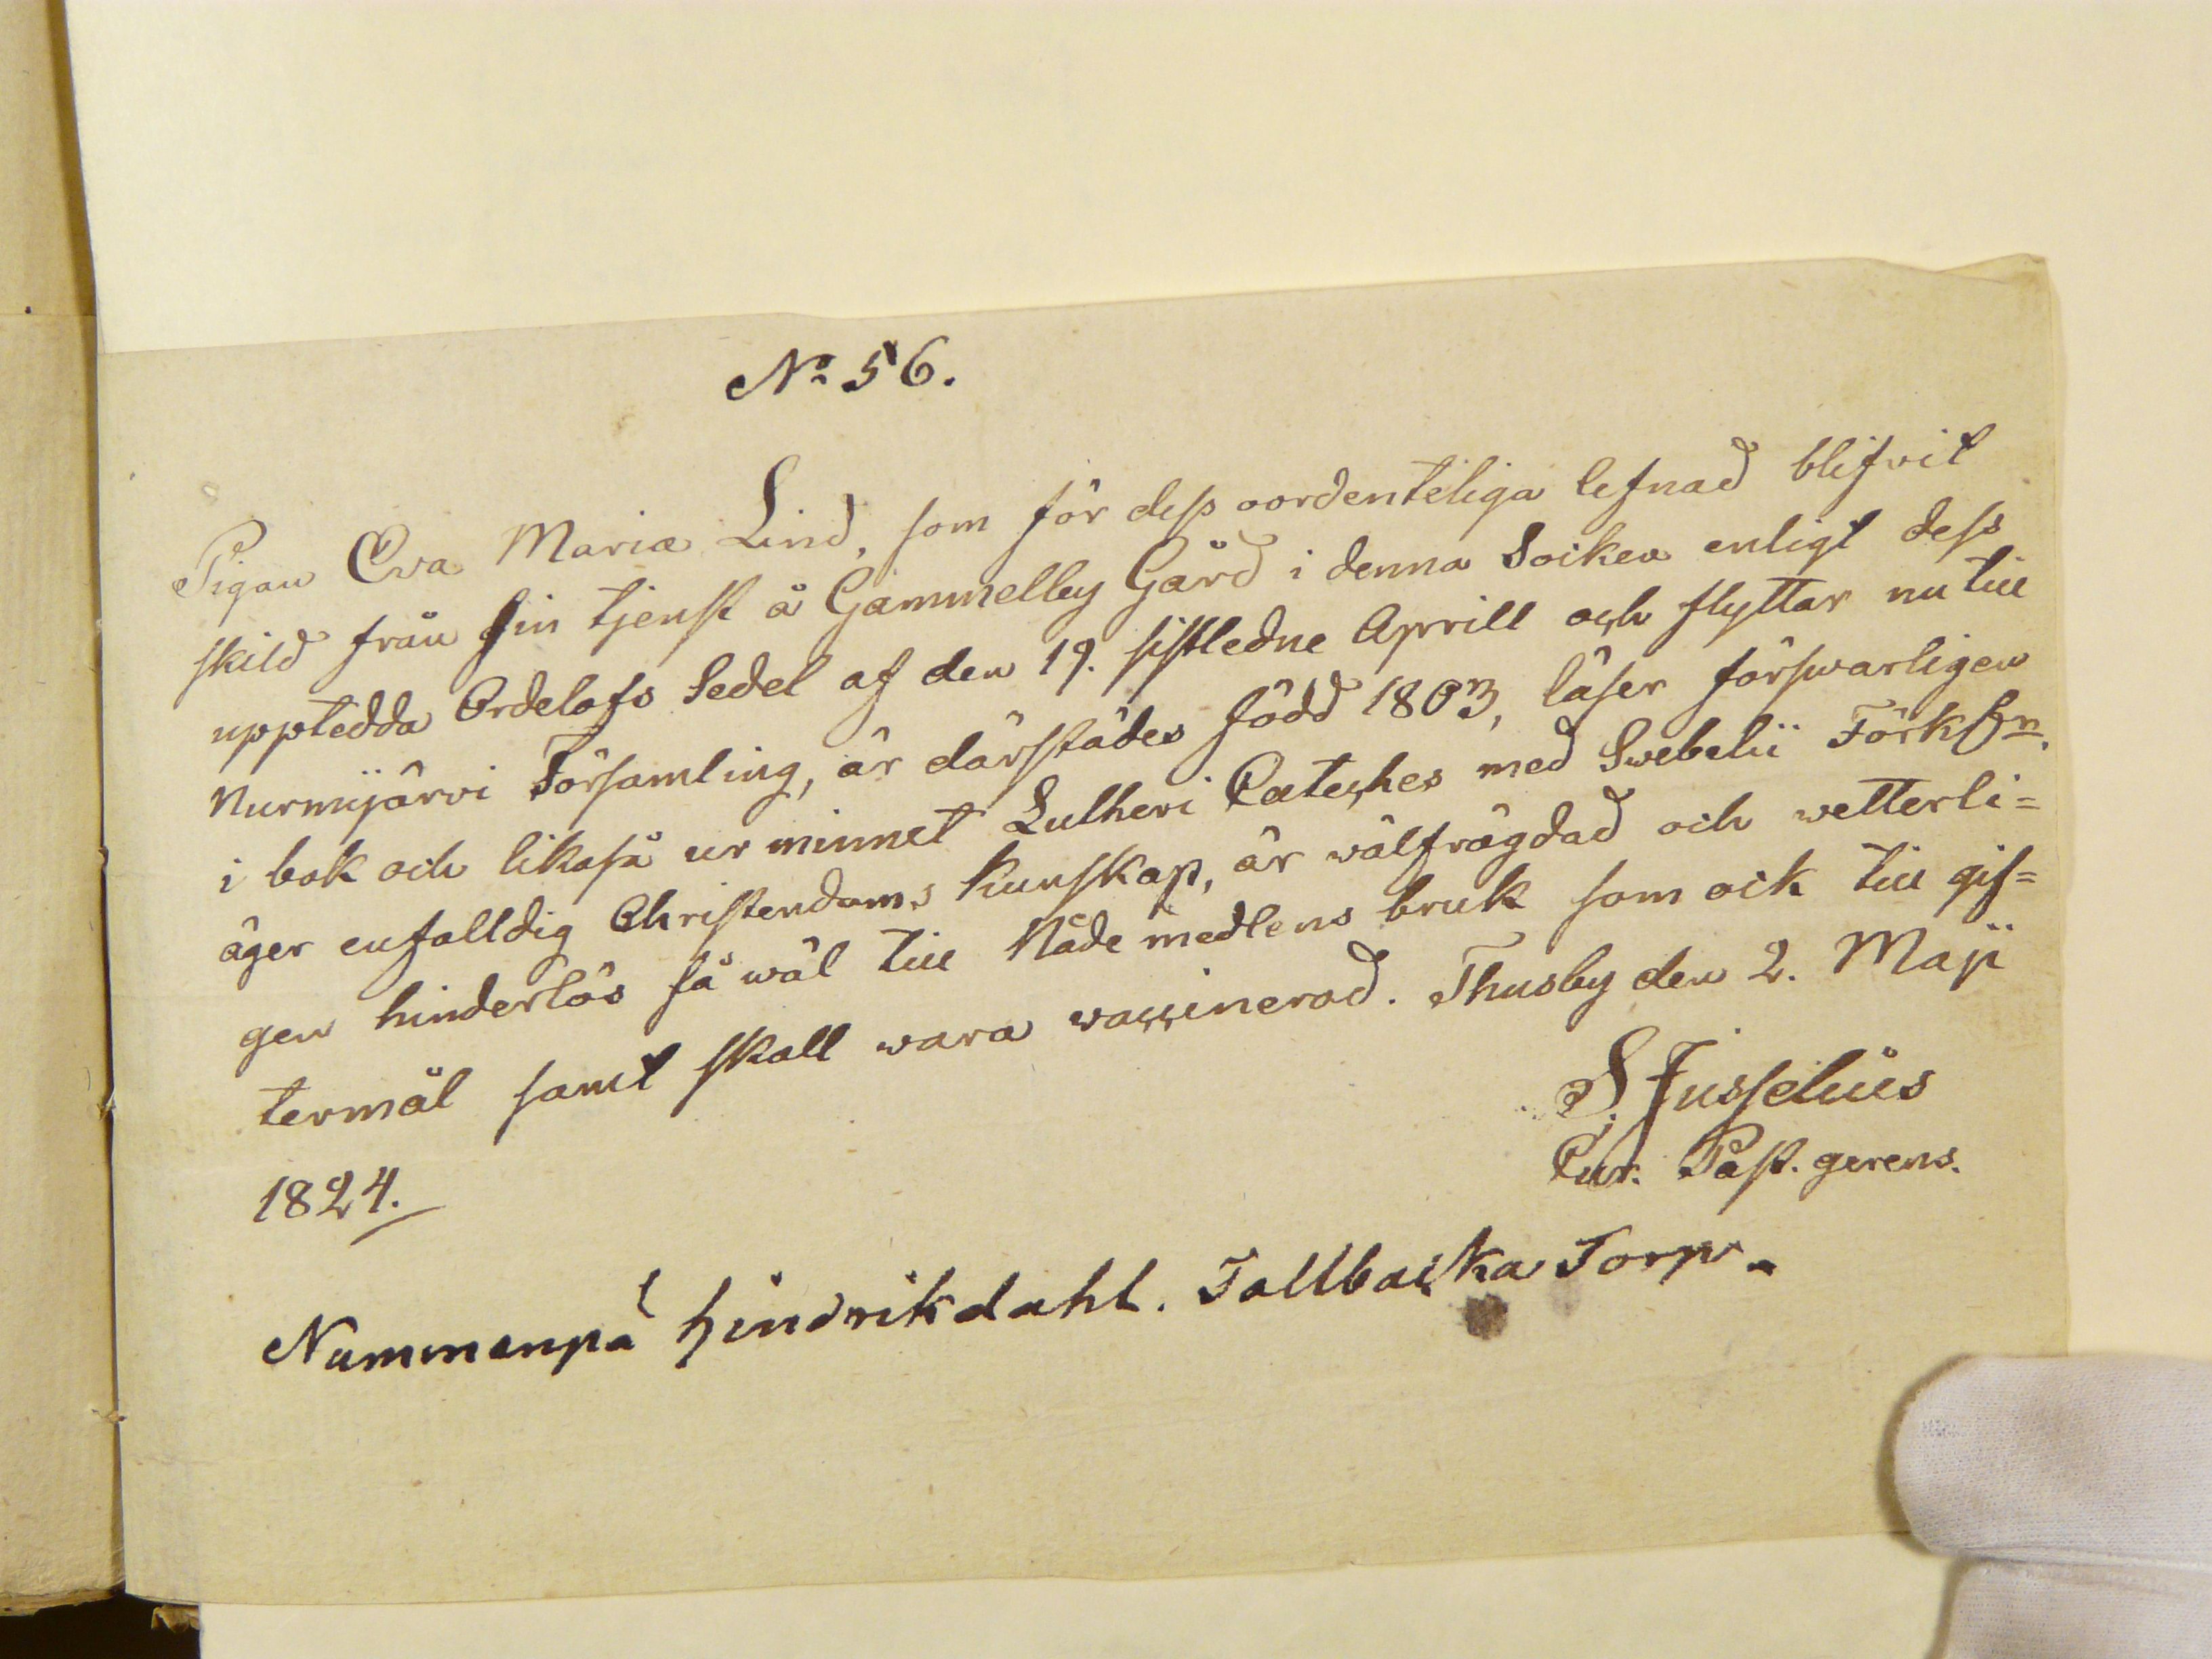 No 56.
Pigan Eva Maria Lind, som för dess oordenteliga lefnad blifvit
skild från sin tjenst å Gammelby Gård i denna Socken enligt dess
upptedda Ordelofs Sedel af den 19. sistledne Aprill och flyttar nu till
Nurmijärvi Församling, är därstädes född 1803, läser förswarligen
i bok och likaså ur minnet Lutheri Cateches med Swebelii Förkl:n.
äger enfalldig Christendoms kunskap, är wälfrägdad och wetterli=
gen hinderlös så wäl till Nåde medlens bruk som ock till gif=
termål samt skall wara waccinerad. Thusby den 2. Maji
1824.
S. Jusselius
Cur. Past. gerens.
Nummenpä Hindrikdahl. Tallbacka Torp.